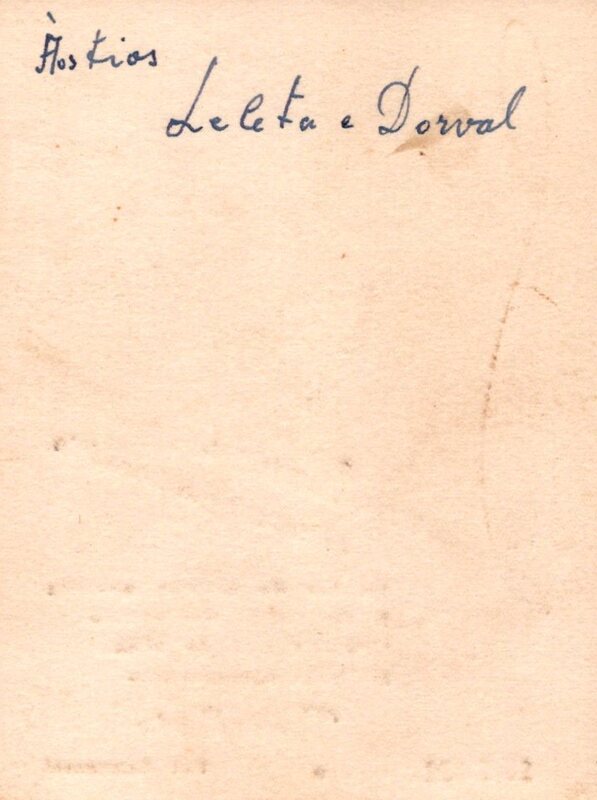 Àos tios
Leleta e Dorval